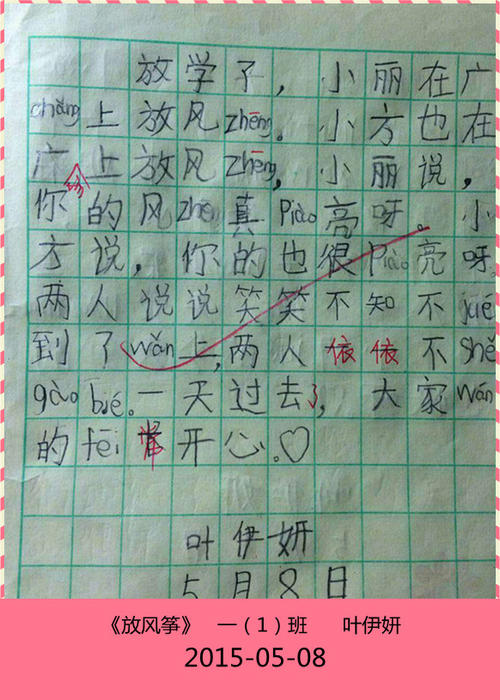 放学了，小丽在广
chǎng上放风zhēng。小方也在
广场上放风zhēng，小丽说，
你的风zhē真piào亮呀。小
方说，你的也很piào亮呀
两人说说笑笑不知不jué
到了wǎn上，两人依依不shě
gào bié。一天过去了，大家wán
的fēi常开心。♡
叶伊妍
5月8日
《放风筝》 一（1）班 叶伊妍
2015-05-08